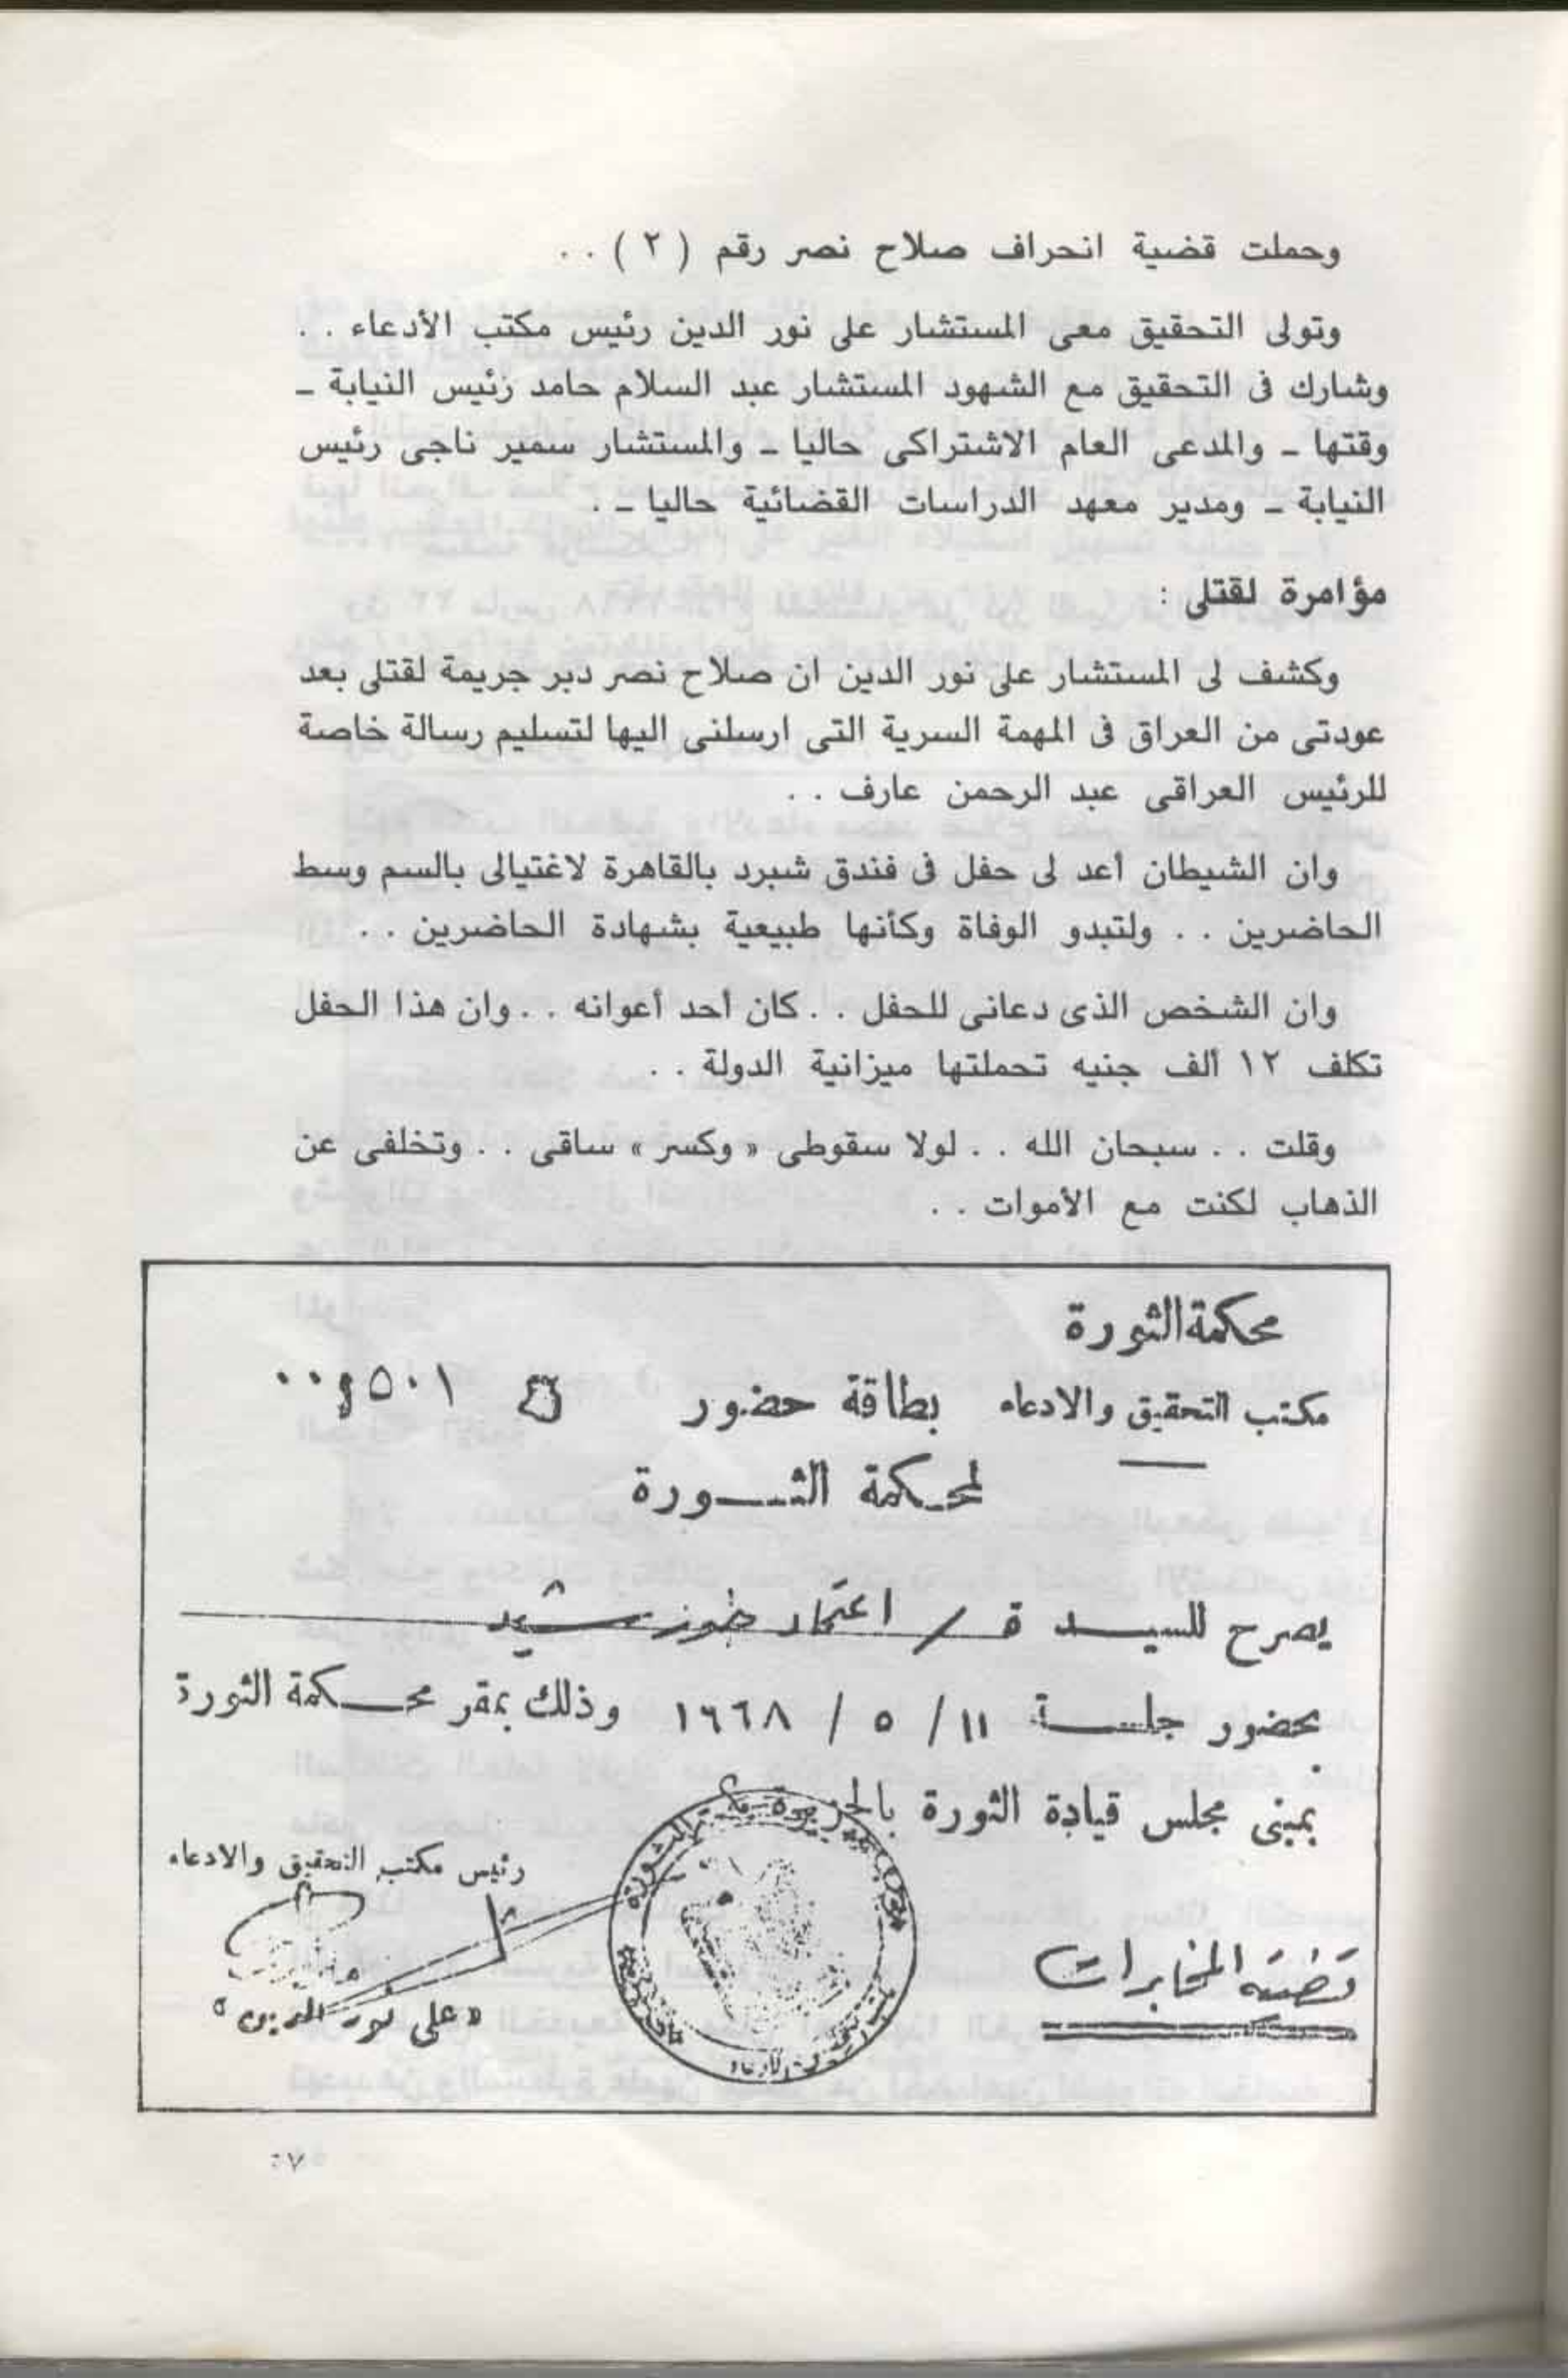 وحملت قضية انحراف صلاح نصر رقم ( ٢ ) . .
وتولى التحقيق معى المستشار على نور الدين رئيس مكتب الأدعاء . .
وشارك فى التحقيق مع الشهود المستشار عبد السلام حامد رئيس النيابة ـ
وقتها ـ والمدعى العام الاشتراكى حاليا ـ والمستشار سمير ناجى رئيس
النيابة ـ ومدير معهد الدراسات القضائية حاليا ـ .
مؤامرة لقتلى :
وكشف لى المستشار على نور الدين ان صلاح نصر دبر جريمة لقتلى بعد
عودتى من العراق فى المهمة السرية التى ارسلنى اليها لتسليم رسالة خاصة
للرئيس العراقى عبد الرحمن عارف . .
وان الشيطان أعد لى حفل فى فندق شبرد بالقاهرة لاغتيالى بالسم وسط
الحاضرين . . ولتبدو الوفاة وكأنها طبيعية بشهادة الحاضرين . .
وان الشخص الذى دعانى للحفل . . كان أحد أعوانه . . وان هذا الحفل
تكلف ١٢ ألف جنيه تحملتها ميزانية الدولة . .
وقلت . . سبحان الله . . لولا سقوطى « وكسر » ساقى . . وتخلفى عن
الذهاب لكنت مع الأموات . .
محكمة الثورة
مكتب التحقيق والادعاء بطاقة حضور
لمحكمة الثـــورة
يصرح للسيـــد ة / اعتماد خورشيد
بحضور جلســة ١١ / ٥ / ١٩٦٨ وذلك بمقر محـكمة الثورة
بمبنى مجلس قيادة الثورة بالجزيرة
رئيس مكتب التحقيق والادعاء
« على نور الدين »
قضية المخابرات